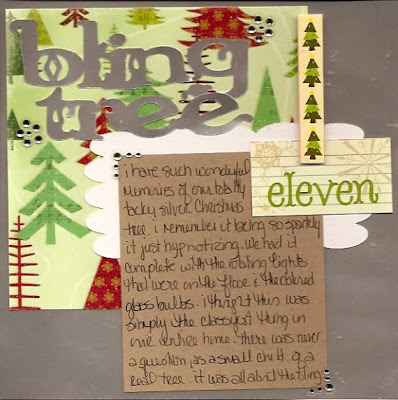 bling
tree
eleven
i have such wonderful
memories of our totally
tacky silver Christmas
tree. i remember it being so sparkly
it just hypnotizing. We had it
complete with the rotating lights
that were on the floor & the colored
glass bulbs. i thought this was
simply the classyest thing in
our entire home. there was never
a question, as a small child, of a
real tree. it was all about the bling